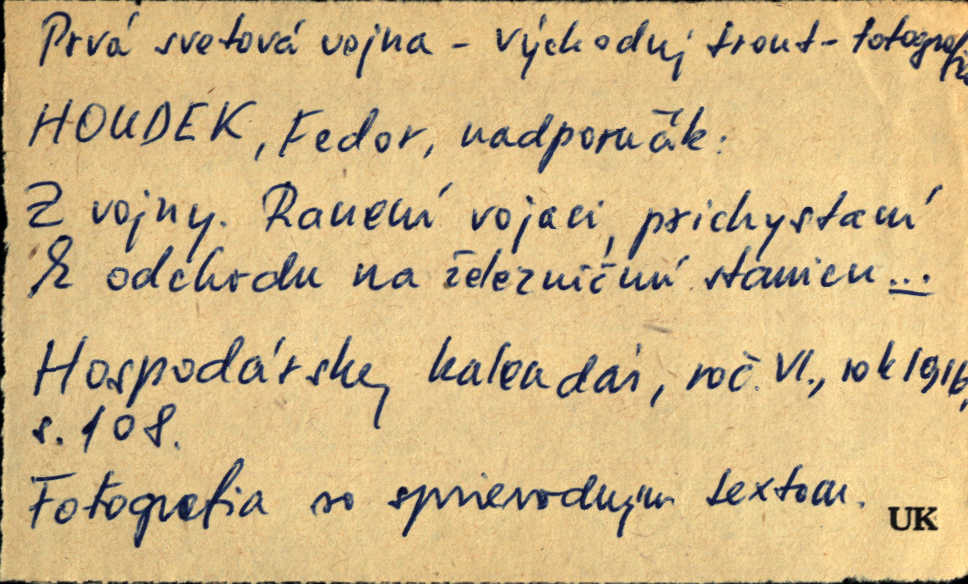 Prvá svetová vojna - východný front - fotografia
HOUDEK, Fedor, nadporučík:
Z vojny. Ranení vojaci, prichystaní
k odchodu na železničnú stanicu...
Hospodársky kalendár, roč. VI., rok 1916,
s. 108.
Fotografia so sprievodným textom.
UK